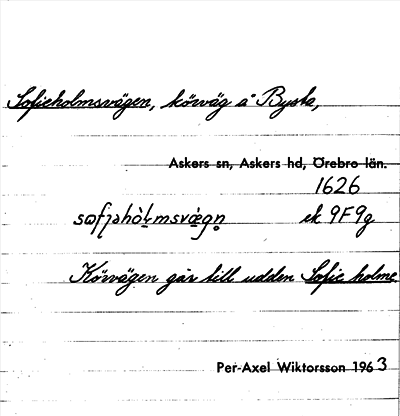 Sofieholmsvägen, körväg å Bysta,
Askers sn, Askers hd, Örebro län.
1626
ek 9F9g
Körvägen går till udden Sofieholme.
Per-Axel Wiktorsson 1963